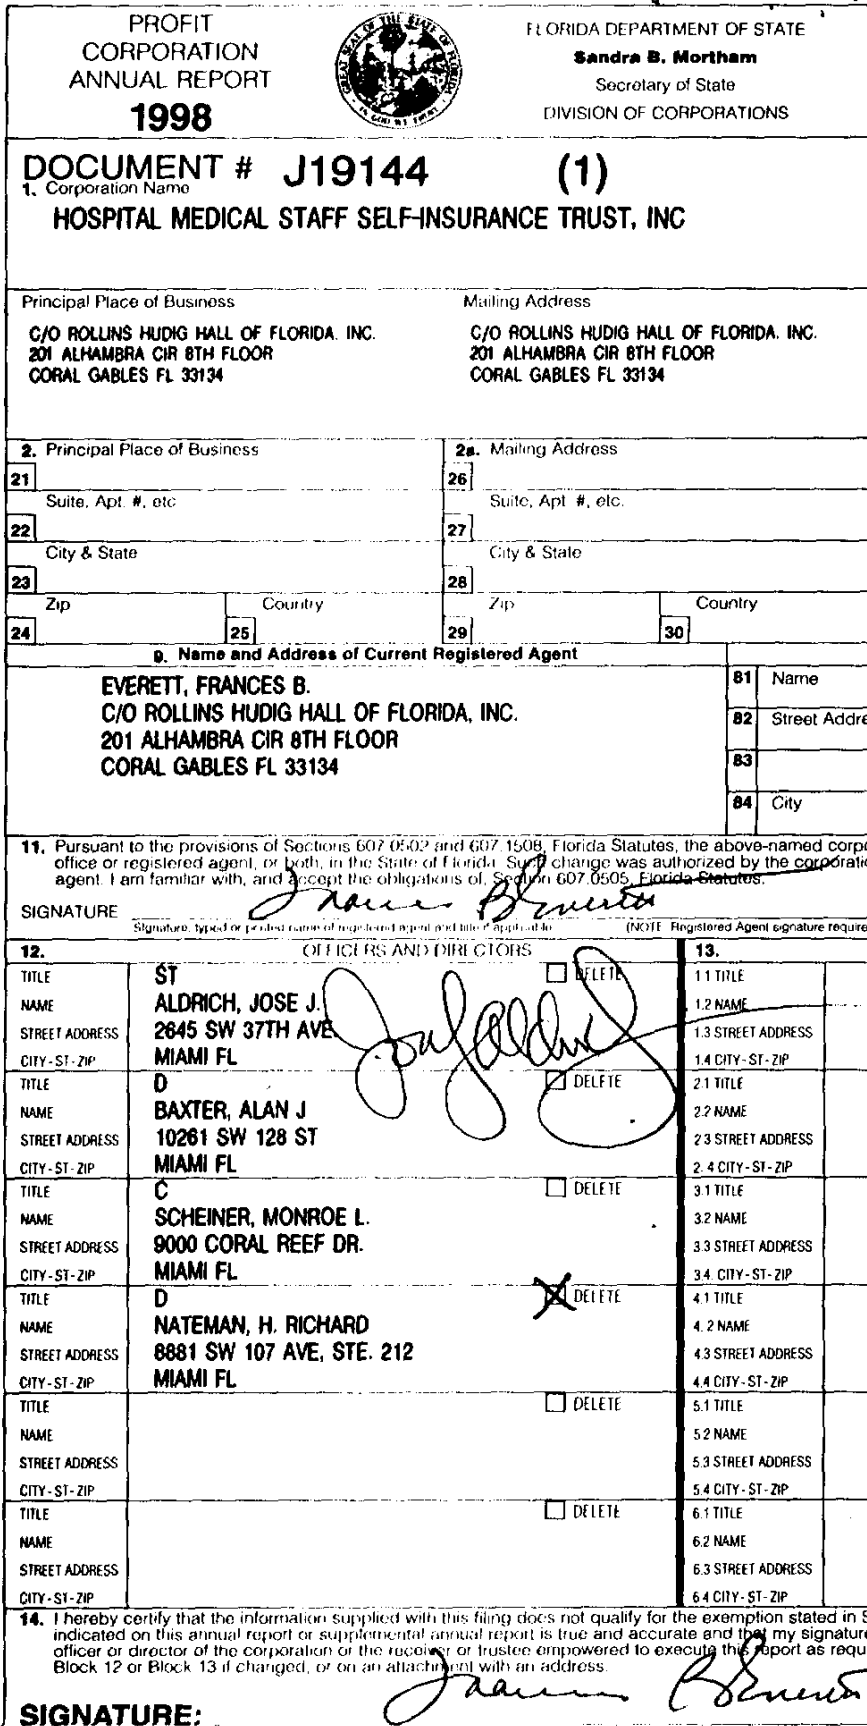 PROFIT
CORPORATION
ANNUAL REPORT
1998
GREAT SEAL OF THE STATE OF FLORIDA
IN GOD WE TRUST
FLORIDA DEPARTMENT OF STATE
Sandra B. Mortham
Secretary of State
DIVISION OF CORPORATIONS
DOCUMENT # J19144 (1)
1. Corporation Name
HOSPITAL MEDICAL STAFF SELF-INSURANCE TRUST, INC
Principal Place of Business
C/O ROLLINS HUDIG HALL OF FLORIDA. INC.
201 ALHAMBRA CIR 8TH FLOOR
CORAL GABLES FL 33134
Mailing Address
C/O ROLLINS HUDIG HALL OF FLORIDA. INC.
201 ALHAMBRA CIR 8TH FLOOR
CORAL GABLES FL 33134
2. Principal Place of Business
21
Suite, Apt. #, etc
22
City & State
23
Zip
24
Country
25
2a. Mailing Address
26
Suite, Apt. #, etc.
27
City & State
28
Zip
29
Country
30
9. Name and Address of Current Registered Agent
EVERETT, FRANCES B.
C/O ROLLINS HUDIG HALL OF FLORIDA, INC.
201 ALHAMBRA CIR 8TH FLOOR
CORAL GABLES FL 33134
81 Name
82 Street Addre
83
84 City
11. Pursuant to the provisions of Sections 607.0502 and 607.1508, Florida Statutes, the above-named corpo
office or registered agent, or both, in the State of Florida. Such change was authorized by the corporatio
agent. I am familiar with, and accept the obligations of, Section 607.0505, Florida Statutes.
SIGNATURE Frances B Everett
Signature, typed or printed name of registered agent and title if applicable (NOTE Registered Agent signature require
12. OFFICERS AND DIRECTORS
TITLE ST DELETE
NAME ALDRICH, JOSE J.
STREET ADDRESS 2645 SW 37TH AVE
CITY-ST-ZIP MIAMI FL
TITLE D DELETE
NAME BAXTER, ALAN J
STREET ADDRESS 10261 SW 128 ST
CITY-ST-ZIP MIAMI FL
TITLE C DELETE
NAME SCHEINER, MONROE L.
STREET ADDRESS 9000 CORAL REEF DR.
CITY-ST-ZIP MIAMI FL
TITLE D X DELETE
NAME NATEMAN, H. RICHARD
STREET ADDRESS 8881 SW 107 AVE, STE. 212
CITY-ST-ZIP MIAMI FL
TITLE DELETE
NAME
STREET ADDRESS
CITY-ST-ZIP
TITLE DELETE
NAME
STREET ADDRESS
CITY-ST-ZIP
13.
1.1 TITLE
1.2 NAME
1.3 STREET ADDRESS
1.4 CITY-ST-ZIP
2.1 TITLE
2.2 NAME
2.3 STREET ADDRESS
2.4 CITY-ST-ZIP
3.1 TITLE
3.2 NAME
3.3 STREET ADDRESS
3.4. CITY-ST-ZIP
4.1 TITLE
4.2 NAME
4.3 STREET ADDRESS
4.4 CITY-ST-ZIP
5.1 TITLE
5.2 NAME
5.3 STREET ADDRESS
5.4 CITY-ST-ZIP
6.1 TITLE
6.2 NAME
6.3 STREET ADDRESS
6.4 CITY-ST-ZIP
14. I hereby certify that the information supplied with this filing does not qualify for the exemption stated in S
indicated on this annual report or supplemental annual report is true and accurate and that my signature
officer or director of the corporation or the receiver or trustee empowered to execute this report as requ
Block 12 or Block 13 if changed, or on an attachment with an address.
SIGNATURE: Frances B Everett